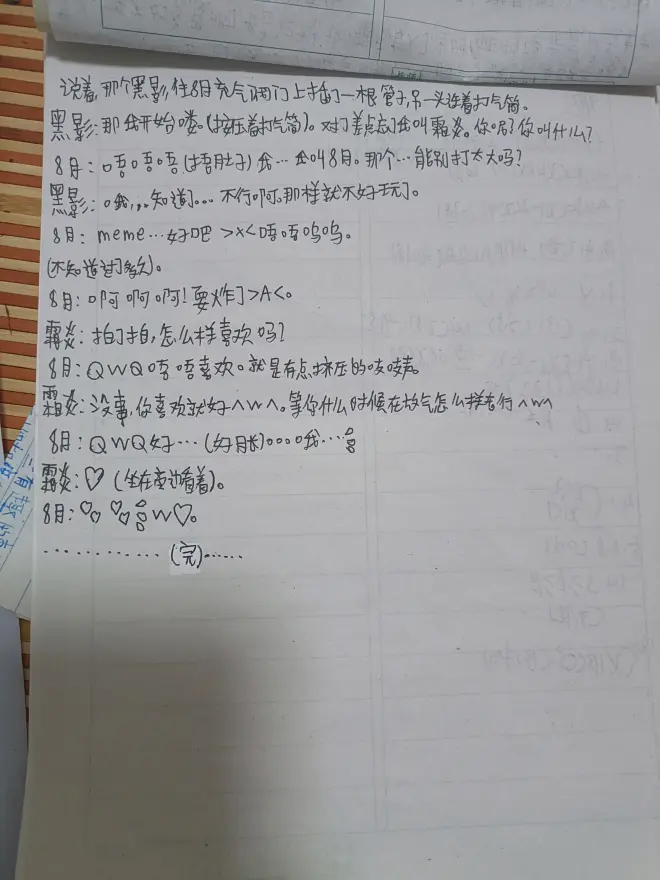 说着,那个黑影,往8月充气阀门上插了一根管子,另一头连着打气筒。
黑影:那我开始喽。(按压着打气筒)。对了差点忘了我叫霜炎。你呢?你叫什么?
8月:唔唔唔(捂肚子)我…我叫8月。那个…能别打太大吗?
黑影:哦,,,知道了…不行啊。那样就不好玩了。
8月:meme…好吧 >x<唔唔呜呜。
(不知道过了多久)。
8月:啊啊啊!要炸了>A<。
霜炎:拍了拍,怎么样喜欢吗?
8月:QWQ唔唔喜欢。就是有点挤压的吱吱声。
霜炎:没事,你喜欢就好^w^。等你什么时候在放气怎么样都行^w^
8月:QWQ好…(好胀)。。。。我…
霜炎:♡(坐在旁边看着)。
8月:♡♡ ♡♡ w♡。
…………(完)……